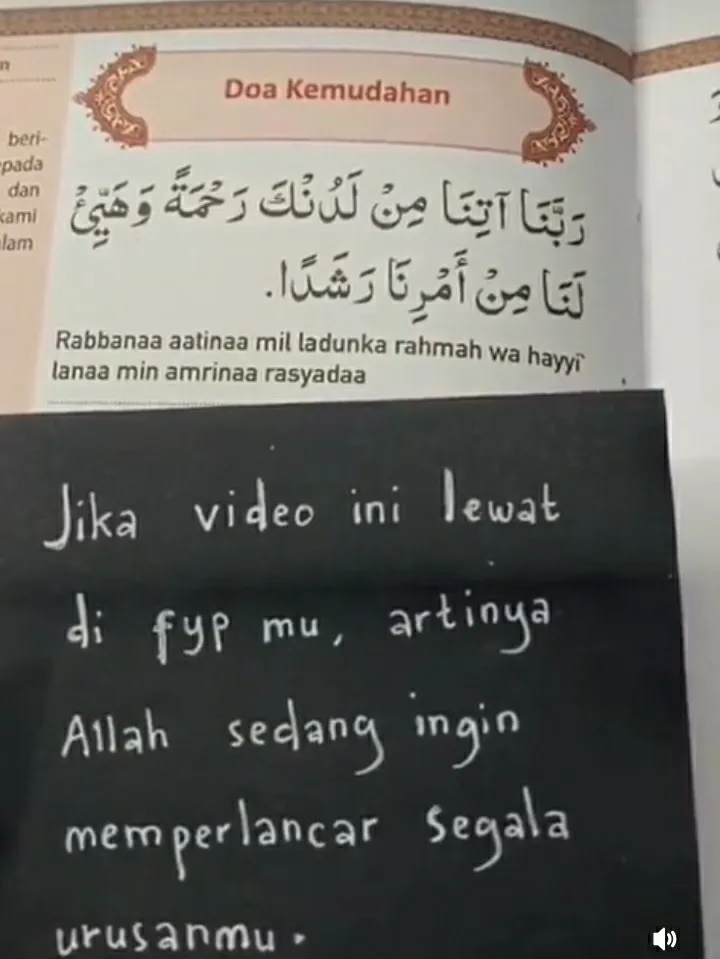 n
beri-
pada
dan
kami
lam
Doa Kemudahan
رَبَّنَا آتِنَا مِنْ لَدُنْكَ رَحْمَةً وَهَيِّئْ
لَنَا مِنْ أَمْرِنَا رَشَدًا.
Rabbanaa aatinaa mil ladunka rahmah wa hayyi`
lanaa min amrinaa rasyadaa
Jika video ini lewat
di fyp mu, artinya
Allah sedang ingin
memperlancar segala
urusanmu.